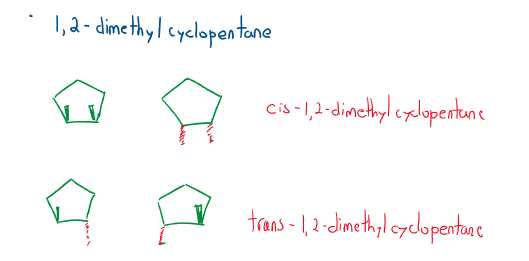 1,2-dimethyl cyclopentane
cis-1,2-dimethyl cyclopentane
trans-1,2-dimethyl cyclopentane